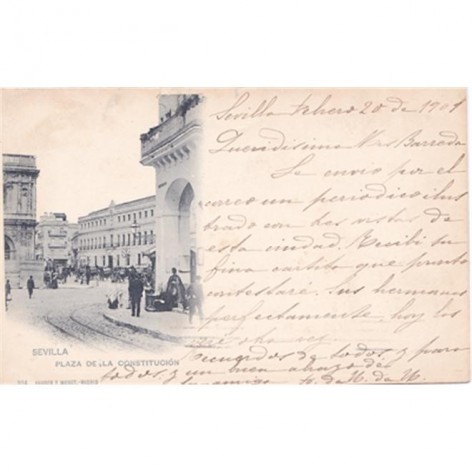 Sevilla Febrero 20 de 1901
Queridisimo Mrs Barrada
Le envio por el
correo un periodico ilus
trado con las vistas de
esta ciudad. Recibi su
fina cartita que pronto
contestaré. Sus hermanas
perfectamente hoy los
he
recuerdos de todos y para
todos y un buen abrazo de
amigo
SEVILLA
PLAZA DE LA CONSTITUCIÓN
HAUSER Y MENET.-MADRID